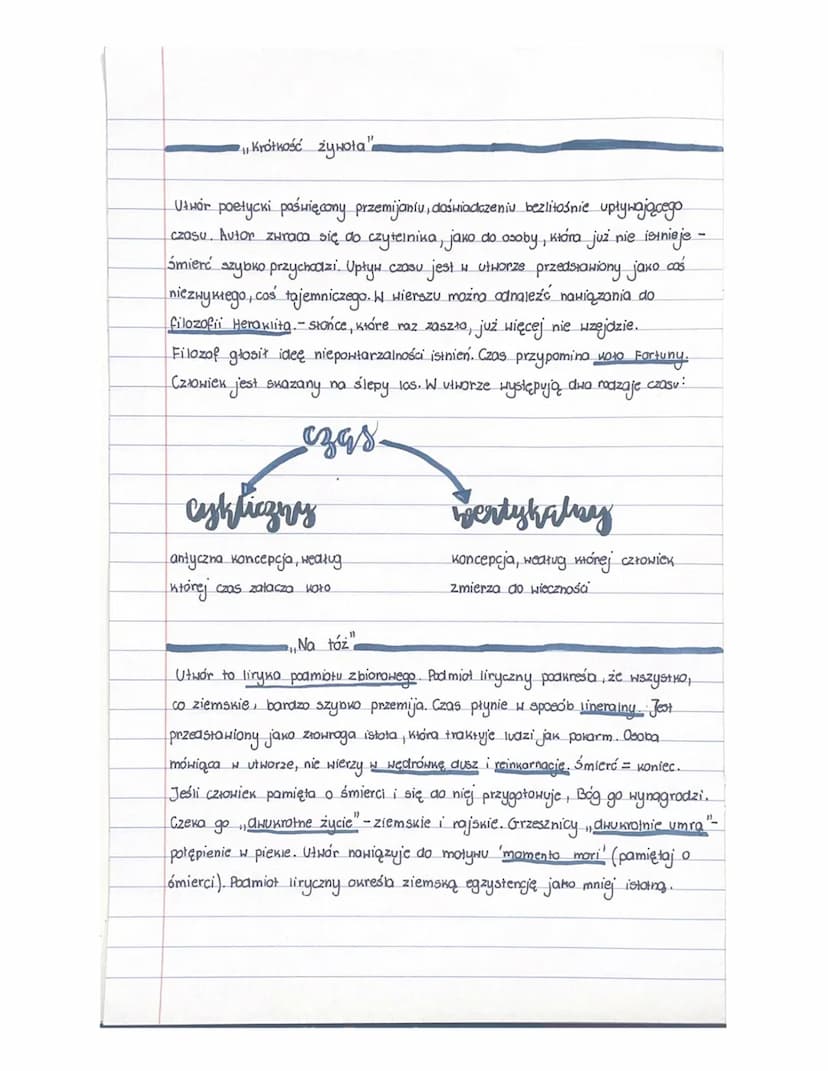 „Krótkość żywota"
Utwór poetycki poświęcony przemijaniu, doświadczeniu bezlitośnie upływającego
czasu. Autor zwraca się do czytelnika, jako do osoby, która już nie istnieje -
śmierć szybko przychodzi. Upływ czasu jest w utworze przedstawiony jako coś
niezwykłego, coś tajemniczego. W wierszu można odnaleźć nawiązania do
filozofii Heraklita. - słońce, które raz zaszło, już więcej nie wzejdzie.
Filozof głosił ideę niepowtarzalności istnień. Czas przypomina koło Fortuny.
Człowiek jest skazany na ślepy los. W utworze występują dwa rodzaje czasu:
czas
cykliczny wertykalny
antyczna koncepcja, według koncepcja, według której człowiek
której czas zatacza koło zmierza do wieczności
„Na tóż"
Utwór to liryka podmiotu zbiorowego. Podmiot liryczny podkreśla, że wszystko,
co ziemskie, bardzo szybko przemija. Czas płynie w sposób lineralny. Jest
przedstawiony jako złowroga istota, która traktuje ludzi jak pokarm. Osoba
mówiąca w utworze, nie wierzy w wędrówkę dusz i reinkarnację. Śmierć = koniec.
Jeśli człowiek pamięta o śmierci i się do niej przygotowuje, Bóg go wynagrodzi.
Czeka go „dwukrotne życie" - ziemskie i rajskie. Grzesznicy „dwukrotnie umrą"-
potępienie w piekle. Utwór nawiązuje do motywu 'momento mori' (pamiętaj o
śmierci). Podmiot liryczny określa ziemską egzystencję jako mniej istotną.